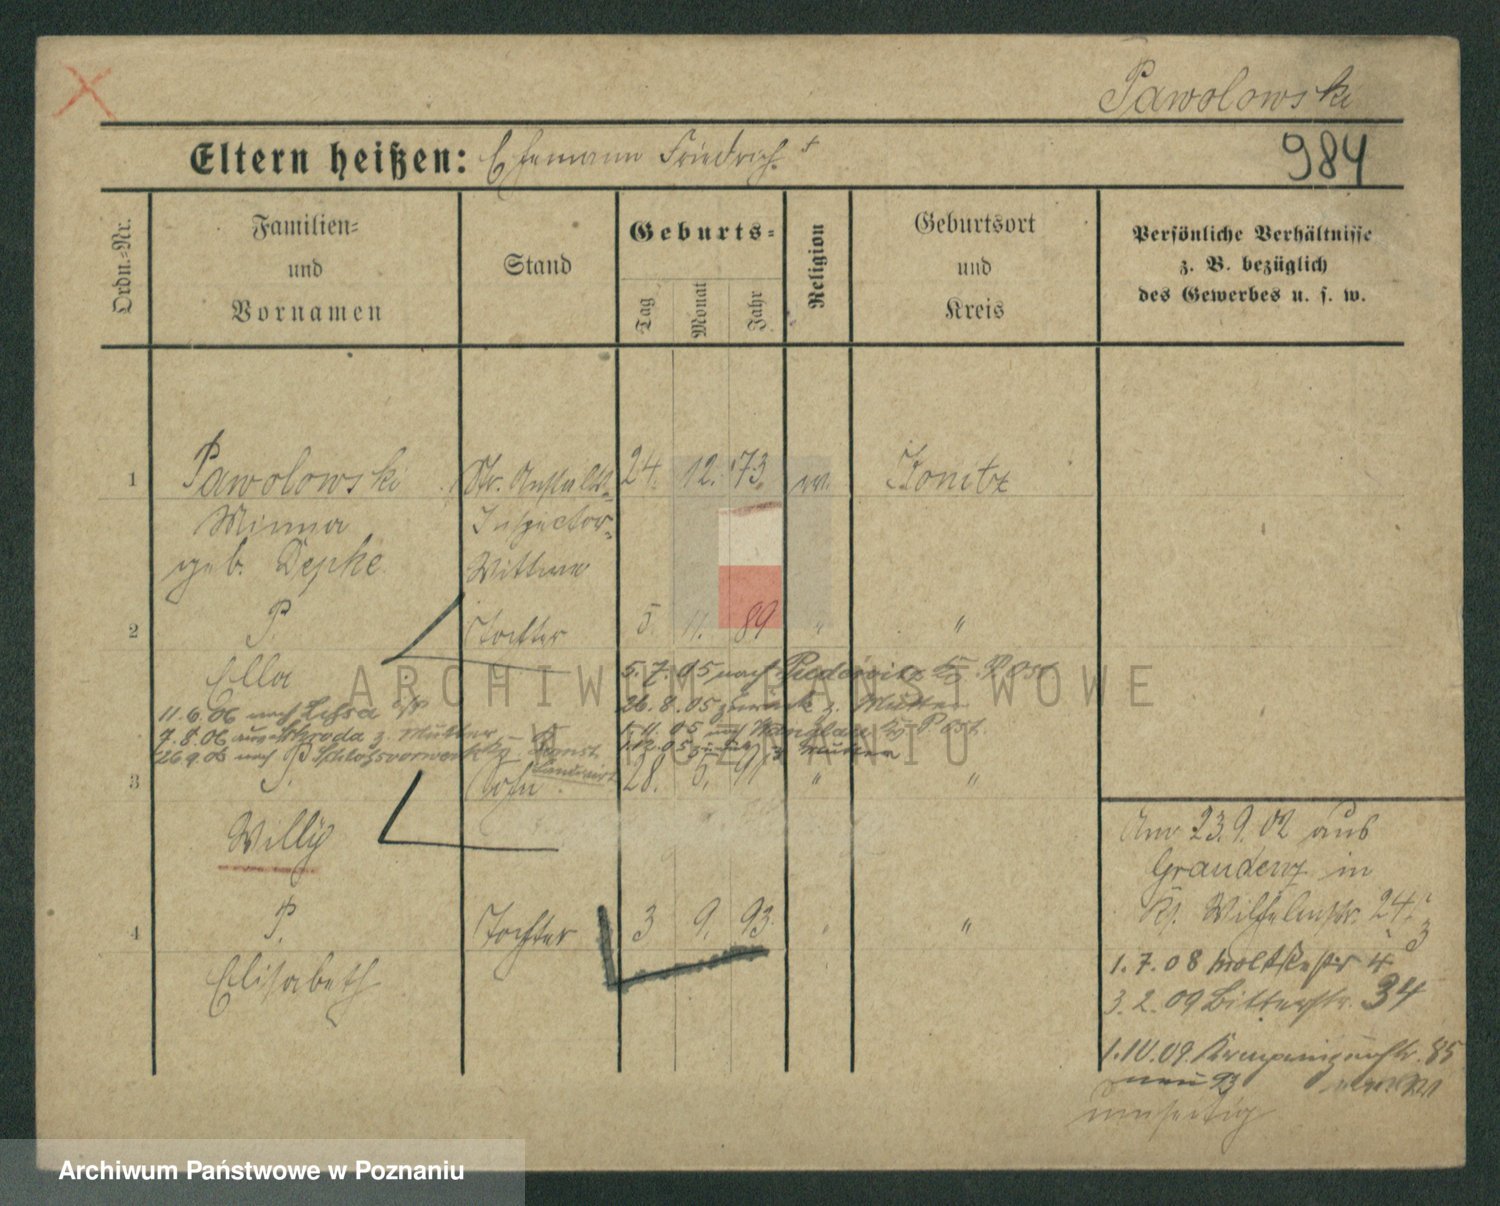 Pawolowski
Eltern heißen: Ehemann Friedrich +
984
Ordn.-Nr.
Familien-
und
Vornamen
Stand
Geburts-
Tag
Monat
Jahr
Religion
Geburtsort
und
Kreis
Persönliche Verhältnisse
z. B. bezüglich
des Gewerbes u. s. w.
1 Pawolowski Str. Anstalts- 24. 12. 73 Konitz
Minna Inspector-
geb. Depke Wittwe
2 P. Tochter 5. 11. 89 " "
Ella 5.7.05 nach Pudewitz Post
11.6.06 nach 26.8.05 zurück z. Mutter
7.8.06 aus Schroda z. Mutter 1.11.05 nach Post.
26.9.06 nach Schlossvorwerk 1.12.05 z. Mutter
3 P. Sohn 28. 5. 91 " "
Willy
4 P. Tochter 3 9. 93. " "
Elisabeth
Am 23.9.02 aus
Graudenz in
Wilhelmstr. 24
1.7.08 Moltkestr 4
3.2.09 Bitterstr. 34
1.10.09. 85
neu 93
umseitig
ARCHIWUM PAŃSTWOWE
W POZNANIU
Archiwum Państwowe w Poznaniu